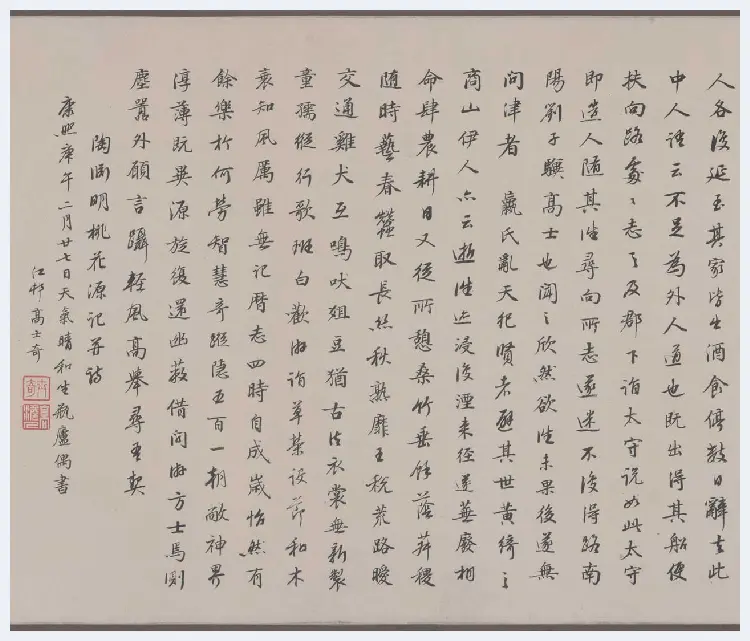 人各復延至其家皆出酒食停數日辭去此
中人語云不足為外人道也既出得其船便
扶向路處〻志之及郡下詣太守說如此太守
即遣人隨其往尋向所志遂迷不復得路南
陽劉子驥高士也聞之欣然欲往未果後遂無
問津者 嬴氏亂天紀賢者避其世黃綺之
商山伊人亦云逝往迹浸復湮來徑遂蕪廢相
命肆農耕日入從所憩桑竹垂餘蔭菽稷
隨時藝春蠶取長絲秋熟靡王稅荒路曖
交通雞犬互鳴吠俎豆猶古法衣裳無新製
童孺縱行歌班白歡游詣草榮後節和木
衰知風厲雖無記曆志四時自成歲怡然有
餘樂於何勞智慧奇蹤隱五百一朝敞神界
淳薄既異源旋復還幽蔽借問游方士焉測
塵囂外願言躡輕風高舉尋吾契
陶淵明桃花源記并詩
康熙庚午二月廿七日天氣晴和坐瓶廬偶書
江邨高士奇